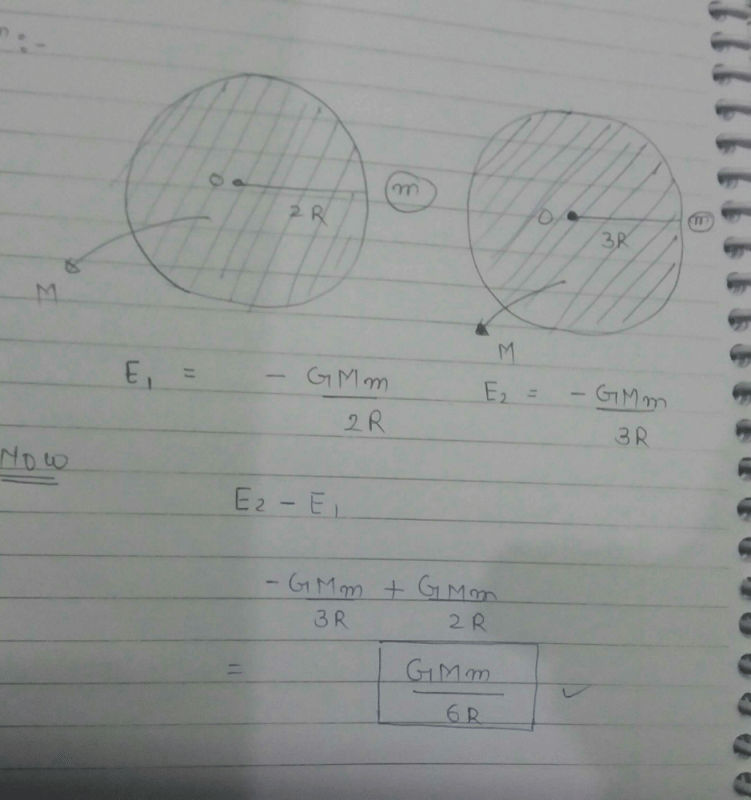 :-
O 2R m
M
O 3R m
M
E₁ = - GMm / 2R
E₂ = - GMm / 3R
NOW
E₂ - E₁
- GMm / 3R + GMm / 2R
= GMm / 6R ✓